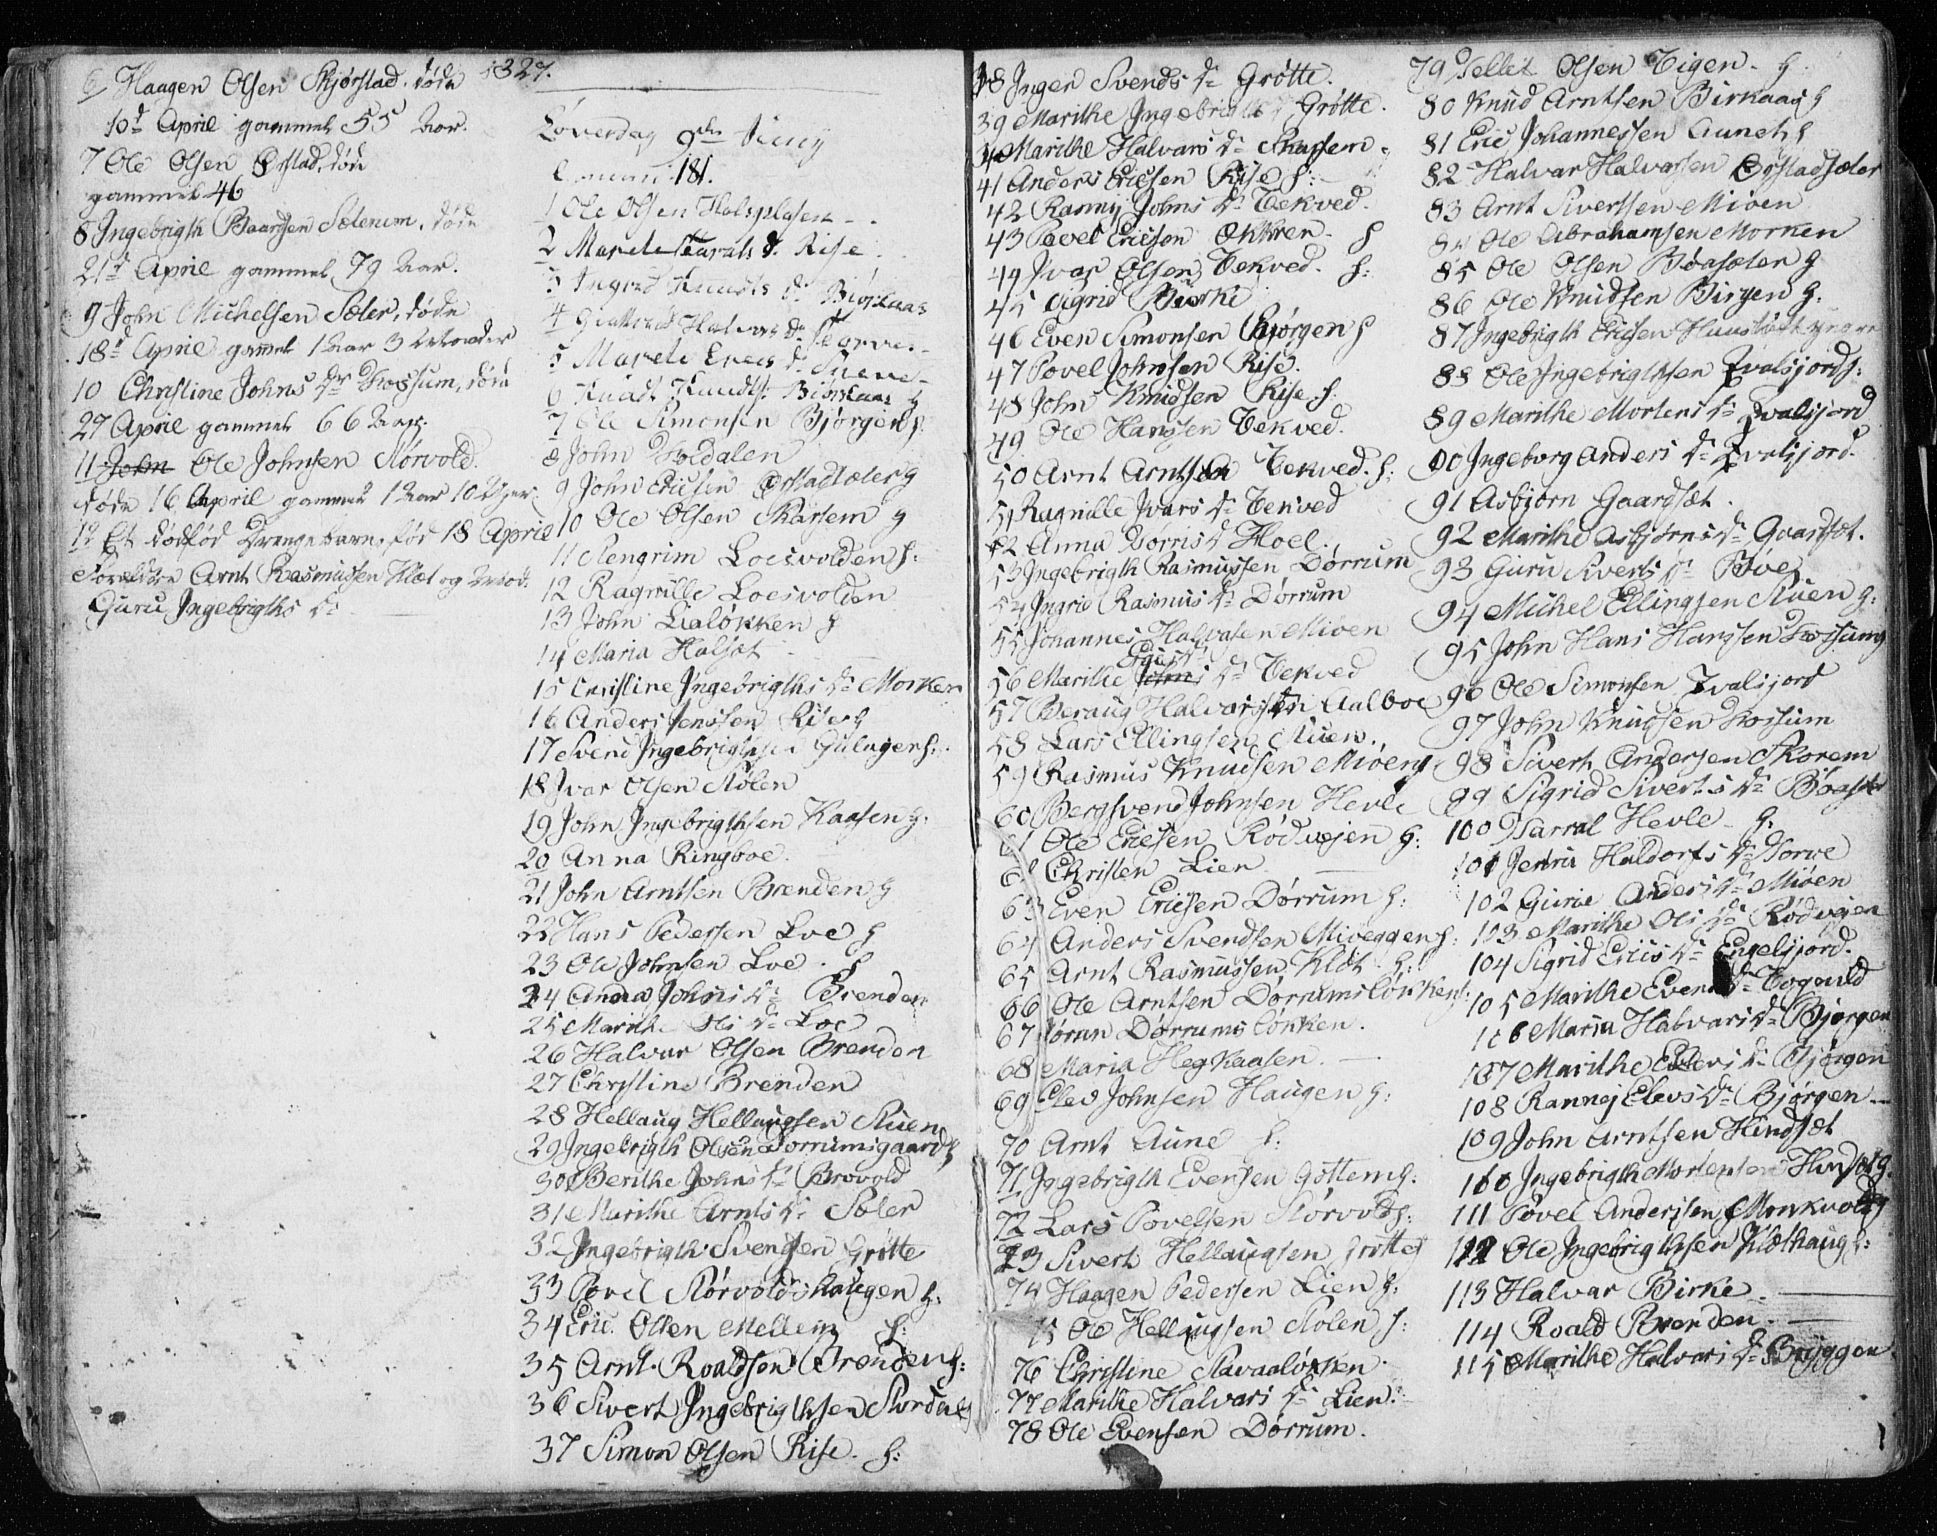 6/ Haagen Olsen Skjørstad. døde
10d April gammel 55 Aar.
7 Ole Olsen Ørstad, døde
gammel 46
8 Ingebrigth Baardsen Sæterum, døde
21d April gammel 79 Aar.
9 John Michelsen Sæter, døde
18d April gammel 1 Aar 3 Maaneder
10 Christine Johns Dr Fossum, døde
27 April gammel 66 Aar.
11 John Ole Johnsen Størvold.
døde 16 April gammel 1 Aar 10 Uger
12 Et dødfød Drengebarn, fød 18 April
Forældre Arnt Rasmussen Klæt og
Guru Ingebrigths Dr
1827.
Løverdag 9de Juny
181.
1 Ole Olsen Holsplasen
2 Marele Dr. Rise
3 Ingrid Knudts Dr Biørkaas
4 Halvors Dr
5 Marele Erics Dr
6 Knudt Knudts: Biørkaas g
7 Ole Simonsen Bjørgen g
8 John Voldalen
9 John Ericsen Ørstadsæter g
10 Ole Olsen Skarsem g
11 Stengrim Loesvolden g:
12 Ragnille Loesvolden
13 John Lialøkken g
14 Maria Halsæt
15 Christine Ingebrigths Dr Morken
16 Anders Jenssen Rise g
17 Svend Ingebrigthsen Gulagen g:
18 Ivar Olsen Stølen
19 John Ingebrigthsen Kaasen g.
20 Anna Ringboe.
21 John Arntsen Brenden g
22 Hans Pedersen Loe g
23 Ole Johnsen Loe. g
24 Anna Johns Dr Brenden
25 Marithe Ols Dr Loe
26 Halvar Olsen Brenden
27 Christine Brenden
28 Hellaug Hellaugsen Stuen
29 Ingebrigth Olsen Dorrumsgaard g
30 Berithe Johns Dr Brovold
31 Marithe Arnts Dr Sæter
32 Ingebrigth Svendsen Grøtte
33 Povel Størvoldshaugen g:
34 Eric. Olsen Mellem g:
35 Arnt. Roaldsen Brenden g:
36 Sivert Ingebrigthsen Stordal g
37 Simon Olsen Rise. g:
38 Inger Svends Dr Grøtte.
39 Marithe Ingebrigths Dr Grøtte.
40 Marithe Halvars Dr Skarsem
41 Anders Ericsen Rise g:
42 Ranny Johns Dr Vekved.
43 Povel Ericson Økkren. g
44 Ivar Olsen Vekved. g:
45 Sigrid Bierke
46 Even Simonsen Bjørgen g
47 Povel Johnsen Rise.
48 John Knudsen Rise g:
49 Ole Hansen Vekved.
50 Arnt Arntsen Vekved. g:
51 Ragnille Ivars Dr Vekved
52 Anna Dørris Dr Hoel.
53 Ingebrigth Rasmussen Dørrum
54 Ingrid Rasmus Dr Dørrum
55 Johannes Halvarsen Mioen
56 Marithe Johns Dr Vekved
57 Beraug Halvarsen Aalboe
58 Lars Ellingsen Stuen.
59 Rasmus Knudsen Mioen g
60 Bergsvend Johnsen Hevle
61 Ole Ericsen Rødvejen g:
62 Christen Lien
63 Even Ericsen Dørrum g:
64 Anders Svendsen Mioeggen g:
65 Arnt Rasmussen Klæt. g:
66 Ole Arntsen Dørrumsløkken g:
67 Jøran Dørrumsløkken.
68 Maria Hegkaasen.
69 Elev Johnsen Haugen g:
70 Arnt Aune g:
71 Ingebrigth Evensen Gottem g.
72 Lars Povelsen Størvold g:
73 Sivert Hellaugsen Grøtte g
74 Haagen Pedersen Lien g:
75 Ole Hellaugsen Stølen g:
76 Christine Stavaaløkken
77 Marithe Halvars Dr Lien:
78 Ole Evensen Dørrum.
79 Pellet Olsen Vigen. g.
80 Knud Arntsen Birkaag g
81 Eric Johannessen Aunet g
82 Halvar Halvarsen Ørstadsæter
83 Arnt Sivertsen Mioen
84 Ole Abrahamsen Morken
85 Ole Olsen Bøasæter g
86 Ole Knudsen Birgen g:
87 Ingebrigth Ericsen yngre
88 Ole Ingebrigthsen Hvalsjord g:
89 Marithe Mortens Dr Hvalsjord
90 Ingeborg Anders Dr Hvalsjord.
91 Asbjørn Gaardsæt.
92 Marithe Asbjørns Dr Gaardsæt.
93 Guru Siverts Dr Bøe
94 Michel Ellingsen Stuen g:
95 John Hans Hanssen Fossum g
96 Ole Simonsen Hvalsjord
97 John Knudsen Fossum
98 Sivert Andersen Skorem
99 Sigrid Siverts Dr Bøasæt
100 Harral Hevle. g.
101 Jenru Haldorfs Dr Horve
102 Gurie Anders Dr Mioen
103 Marithe Ols Dr Rødvejen
104 Sigrid Erics Dr Engelsjord.
105 Marithe Evens Dr Vognild
106 Maria Halvars Dr Bjørgen
107 Marithe Elevs Dr Bjørgen
108 Rannej Elevs Dr Bjørgen
109 John Arntsen Hindsæt
110 Ingebrigth Mortensen Hindsæt g.
111 Povel Andersen Monkvold g
112 Ole Ingebrigthsen Klæthaug g:
113 Halvar Birke.
114 Roald Brenden.
115 Marithe Halvars Dr Bryggen